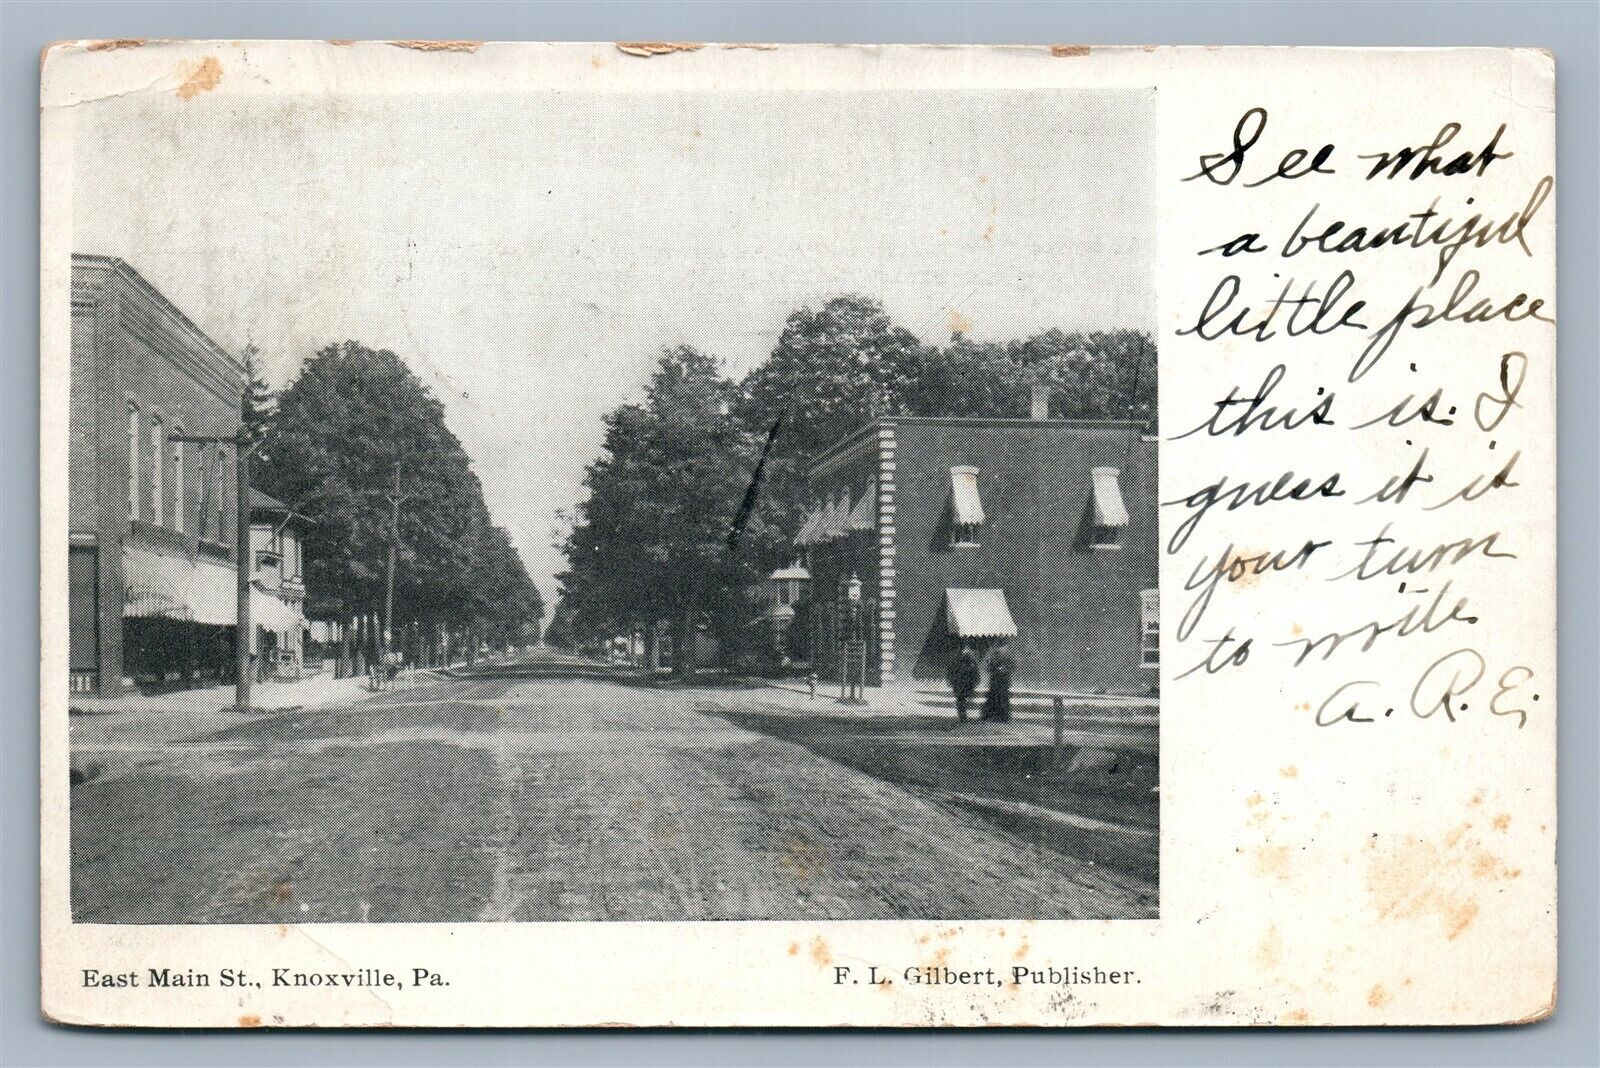 See what
a beautiful
little place
this is. I
guess it is
your turn
to write.
A. R. E.
East Main St., Knoxville, Pa.
F. L. Gilbert, Publisher.